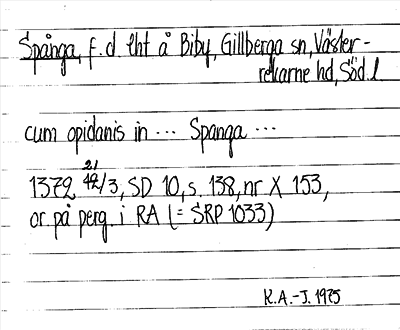 Spånga, f. d. lht å Biby, Gillberga sn, Väster-
rekarne hd, Söd. l
cum opidanis in ... Spanga ...
1372 21/3, SD 10, s. 138, nr X 153,
or. på perg. i RA (= SRP 1033)
K.A.-J. 1975